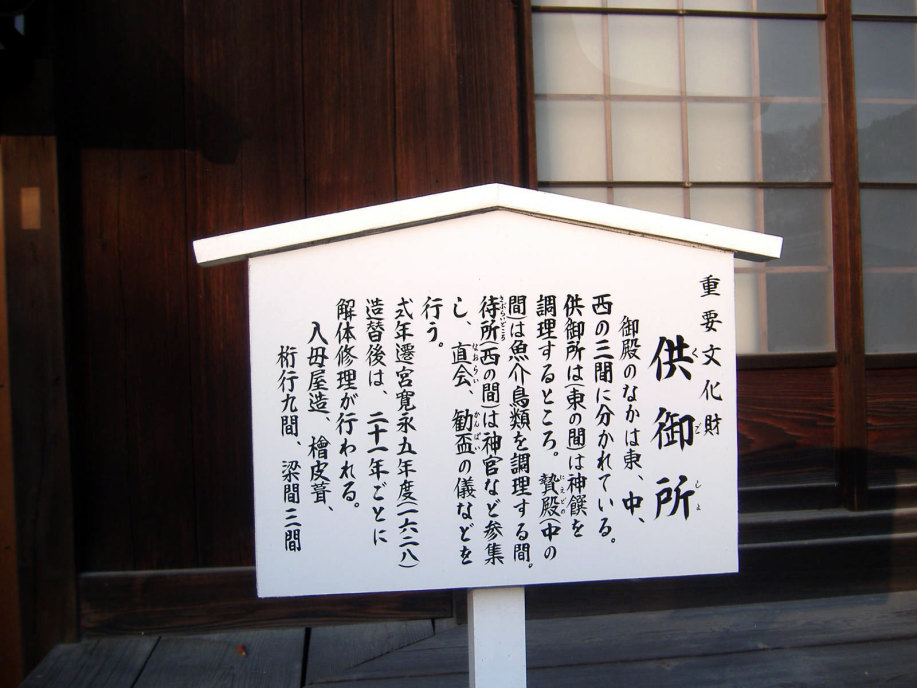 重要文化財
供御所
御殿のなかは東、中、
西の三間に分かれている。
供御所は(東の間)は神饌を
調理するところ。贄殿(中の
間)は魚介鳥類を調理する間。
侍所(西の間)は神官など参集
し、直会、勧盃の儀などを
行う。
式年遷宮寛永五年度(一六二八)
造替後は、二十一年ごとに
解体修理が行われる。
入母屋造、檜皮葺、
桁行九間、梁間三間